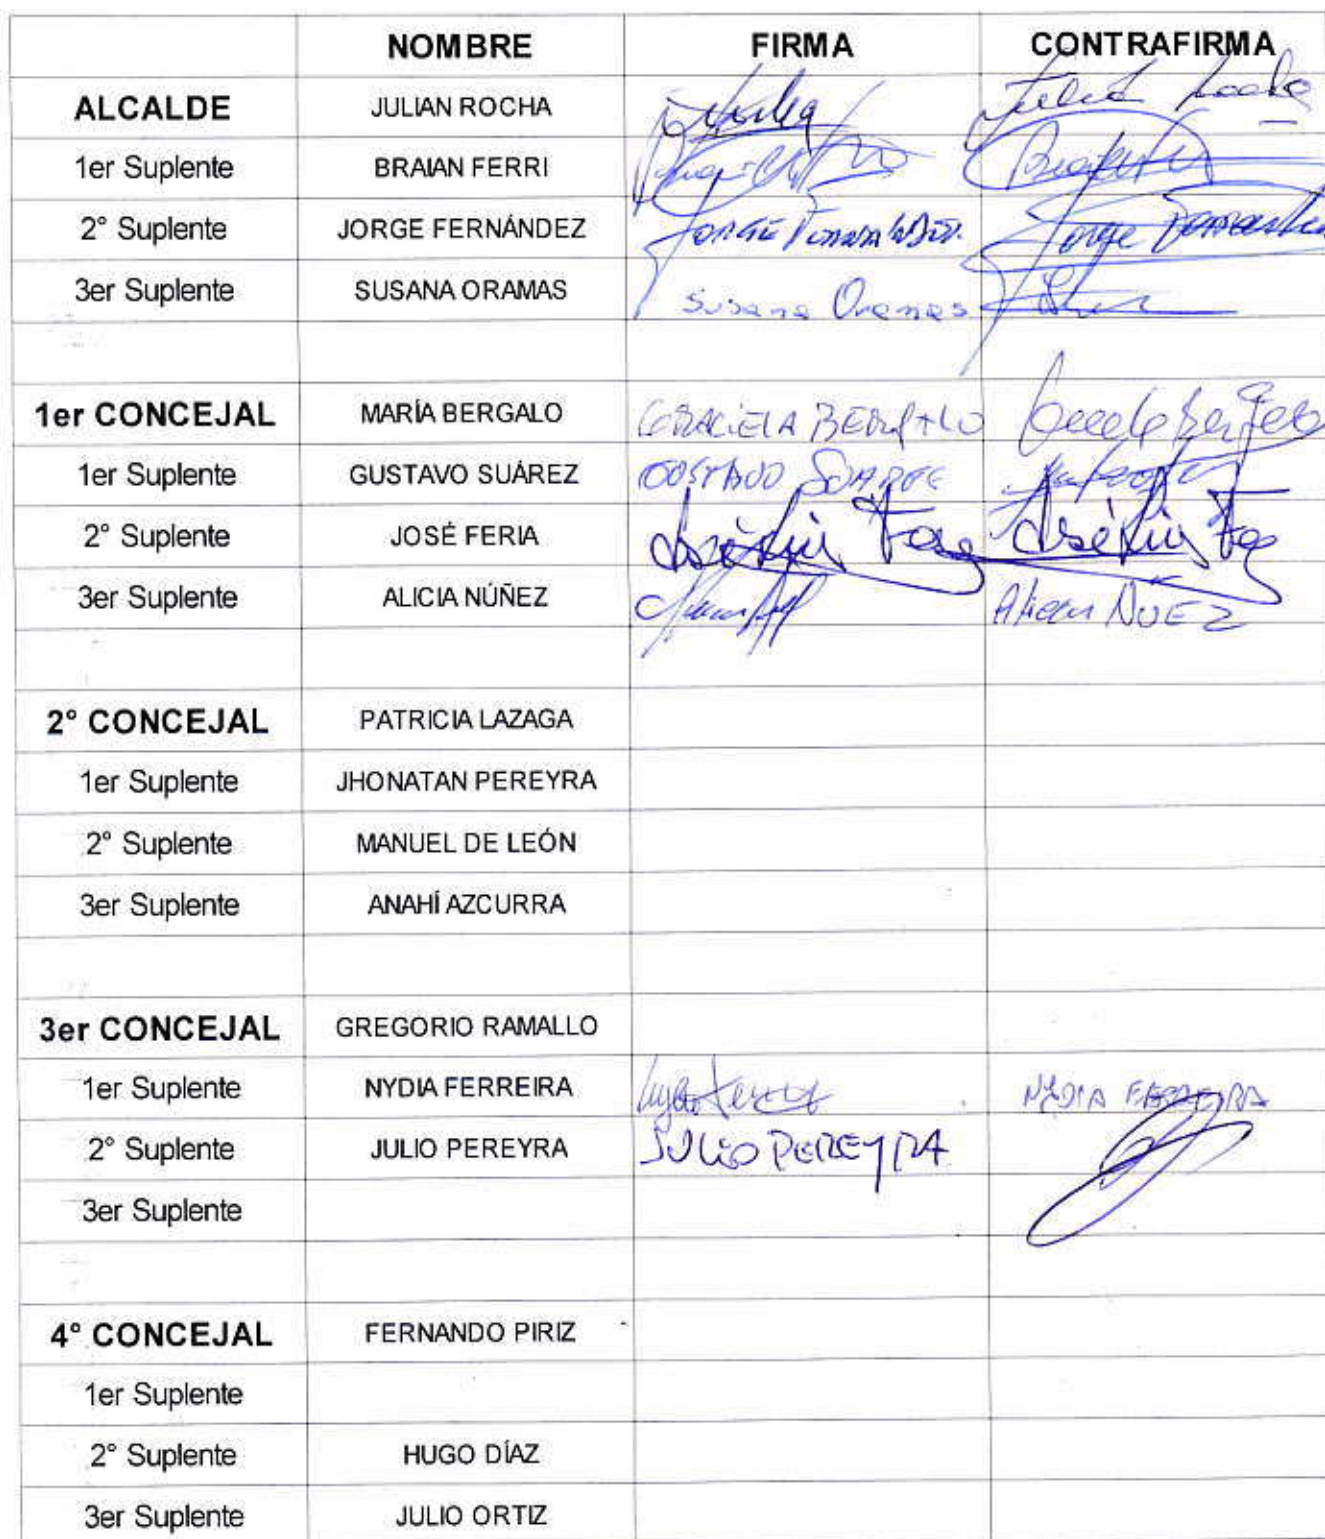 NOMBRE FIRMA CONTRAFIRMA
ALCALDE JULIAN ROCHA
1er Suplente BRAIAN FERRI
2° Suplente JORGE FERNÁNDEZ JORGE
3er Suplente SUSANA ORAMAS Susana Oramas
1er CONCEJAL MARÍA BERGALO GRACIELA BERGALO
1er Suplente GUSTAVO SUÁREZ GUSTAVO SUAREZ
2° Suplente JOSÉ FERIA
3er Suplente ALICIA NÚÑEZ Alicia NUEZ
2° CONCEJAL PATRICIA LAZAGA
1er Suplente JHONATAN PEREYRA
2° Suplente MANUEL DE LEÓN
3er Suplente ANAHÍ AZCURRA
3er CONCEJAL GREGORIO RAMALLO
1er Suplente NYDIA FERREIRA NYDIA FERREIRA
2° Suplente JULIO PEREYRA JULIO PEREYRA
3er Suplente
4° CONCEJAL FERNANDO PIRIZ
1er Suplente
2° Suplente HUGO DÍAZ
3er Suplente JULIO ORTIZ